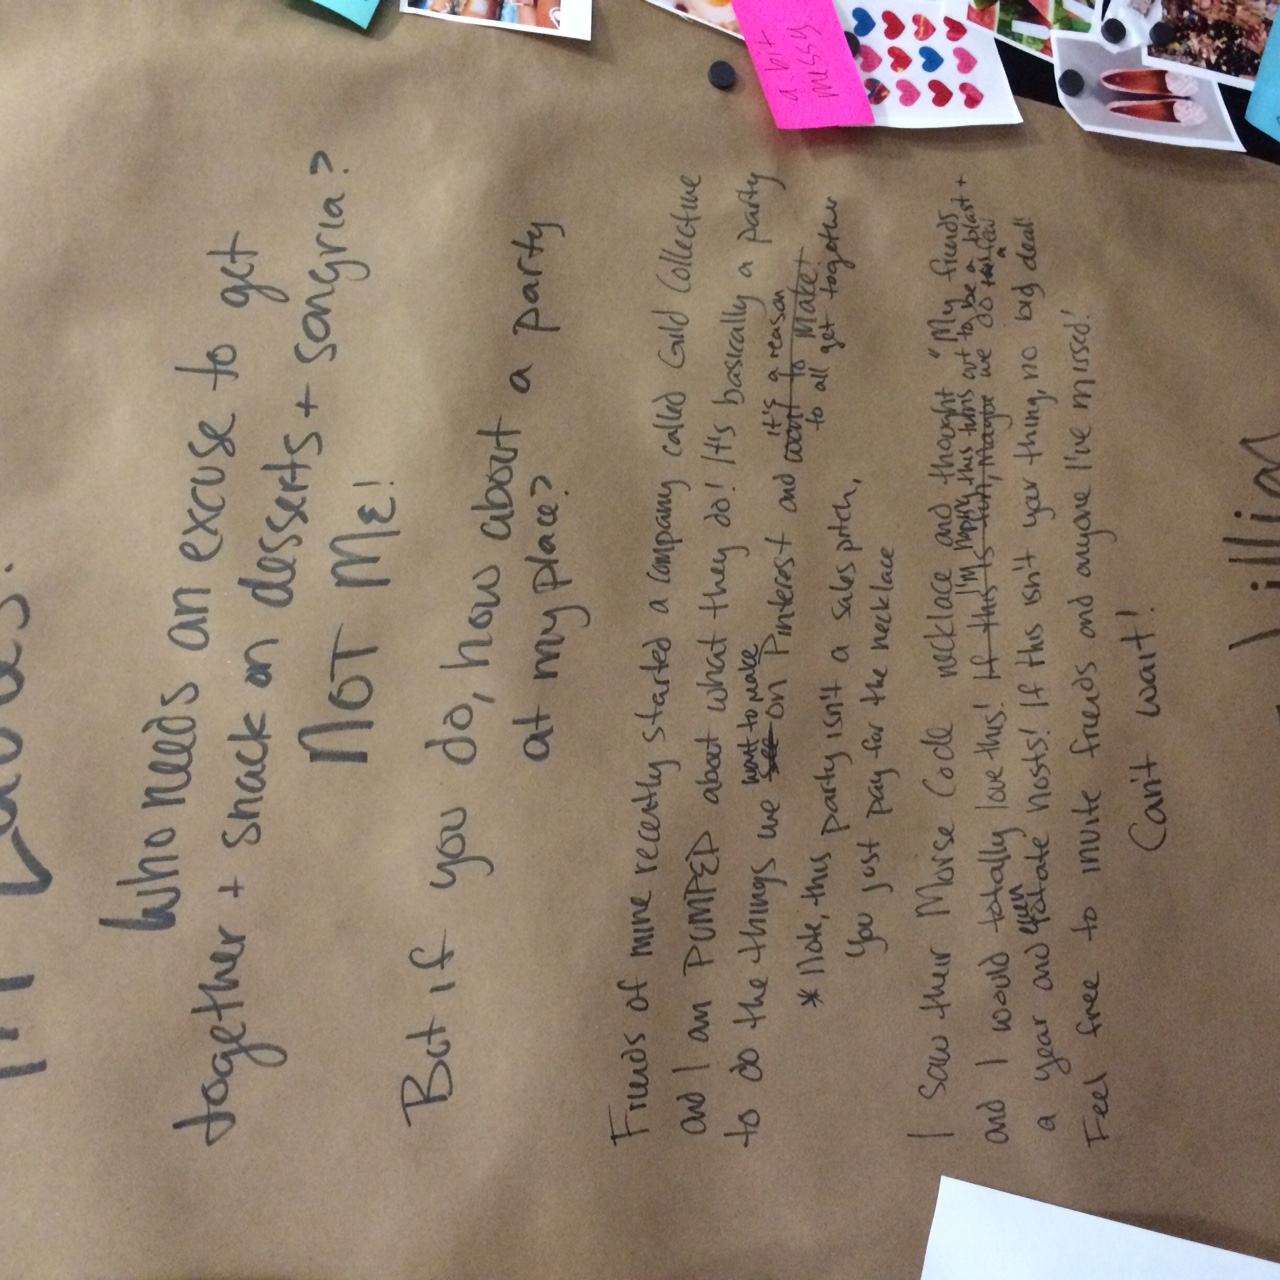 Hi Ladies!
Who needs an excuse to get
together + snack on desserts + sangria?
NOT ME!
But if you do, how about a party
at my place?
Friends of mine recently started a company called Gild Collective
and I am PUMPED about what they do! It's basically a party
to do the things we see want to make on Pinterest and want to make + it's a reason
to all get together
* Note, this party isn't a sales pitch,
you just pay for the necklace
I saw their Morse Code necklace and thought "My friends
and I would totally love this! If this is fun, Maybe we do a few I'm hoping this turns out to be a blast +
a year and even rotate hosts! If this isn't your thing, no big deal!
Feel free to invite friends and anyone I've missed!
Can't wait!
Jillian
a bit
messy